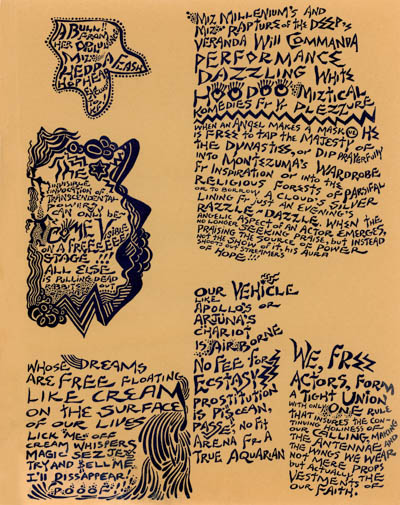 A BULL!
FROM
HER OPIUM
MIZ
HEDDA
HEPHER
EASH
MIZ MILLENIUM'S AND
MIZ RAPTURE OF THE DEEP'S
VERANDA WILL COMMANDA
PERFORMANCE
DAZZLING WHITE
HOODOO MIZTICAL
KOMEDIES FR YR PLEZZURE
WHEN AN ANGEL MAKES A MASK HE
IS FREE TO TAP THE MAJESTY OF
THE DYNASTIES, OR DIP PRAYERFULLY
INTO MONTEZUMA'S WARDROBE
FR INSPIRATION OR INTO THE
RELIGIOUS FORESTS OF PARSIFAL
OR TO BORROW A CLOUD'S SILVER
LINING FR JUST AN EVENING'S
RAZZLE-DAZZLE. WHEN THE
ANGELIC ASPECT OF AN ACTOR EMERGES,
NO LONGER SEEKING PRAISE, BUT INSTEAD
PRAISING THE SOURCE OF POWER
NOT THE SHOW OF IT, HIS AURA
SHOOTS OUT STREAMERS
OF HOPE!!!
THE
INVISIBLE
INVOCATION OF
TRANSCENDENTAL
POWERS
CAN ONLY BE-
COME VISIBLE
IN A FREEEEEE
STAGE!!!
ALL ELSE
IS PULLING DEAD
RABBITS OUT OF
OUR VEHICLE
LIKE
APOLLO'S OR
ARJUNA'S
CHARIOT
IS AIR BORNE
NO FEE FOR
ECSTASY
PROSTITUTION
IS PISCEAN,
PASSÉ; NO FIT
ARENA FR A
TRUE AQUARIAN
WHOSE DREAMS
ARE FREE FLOATING
LIKE CREAM
ON THE SURFACE
OF OUR LIVES
LICK ME OFF
CREAM WHISPERS
MAGIC SEZ JES
TRY AND SELL ME
I'LL DISSAPPEAR!
POOOF!
WE, FREE
ACTORS, FORM
A TIGHT UNION
WITH ONLY ONE RULE
THAT INSURES THE CON-
TINUING HOLINESS OF
OUR CALLING, MAKING
THE ANTENNAE AND
THE WINGS WE WEAR
NOT MERE PROPS
BUT ACTUALLY THE
VESTMENTS OF
OUR FAITH.